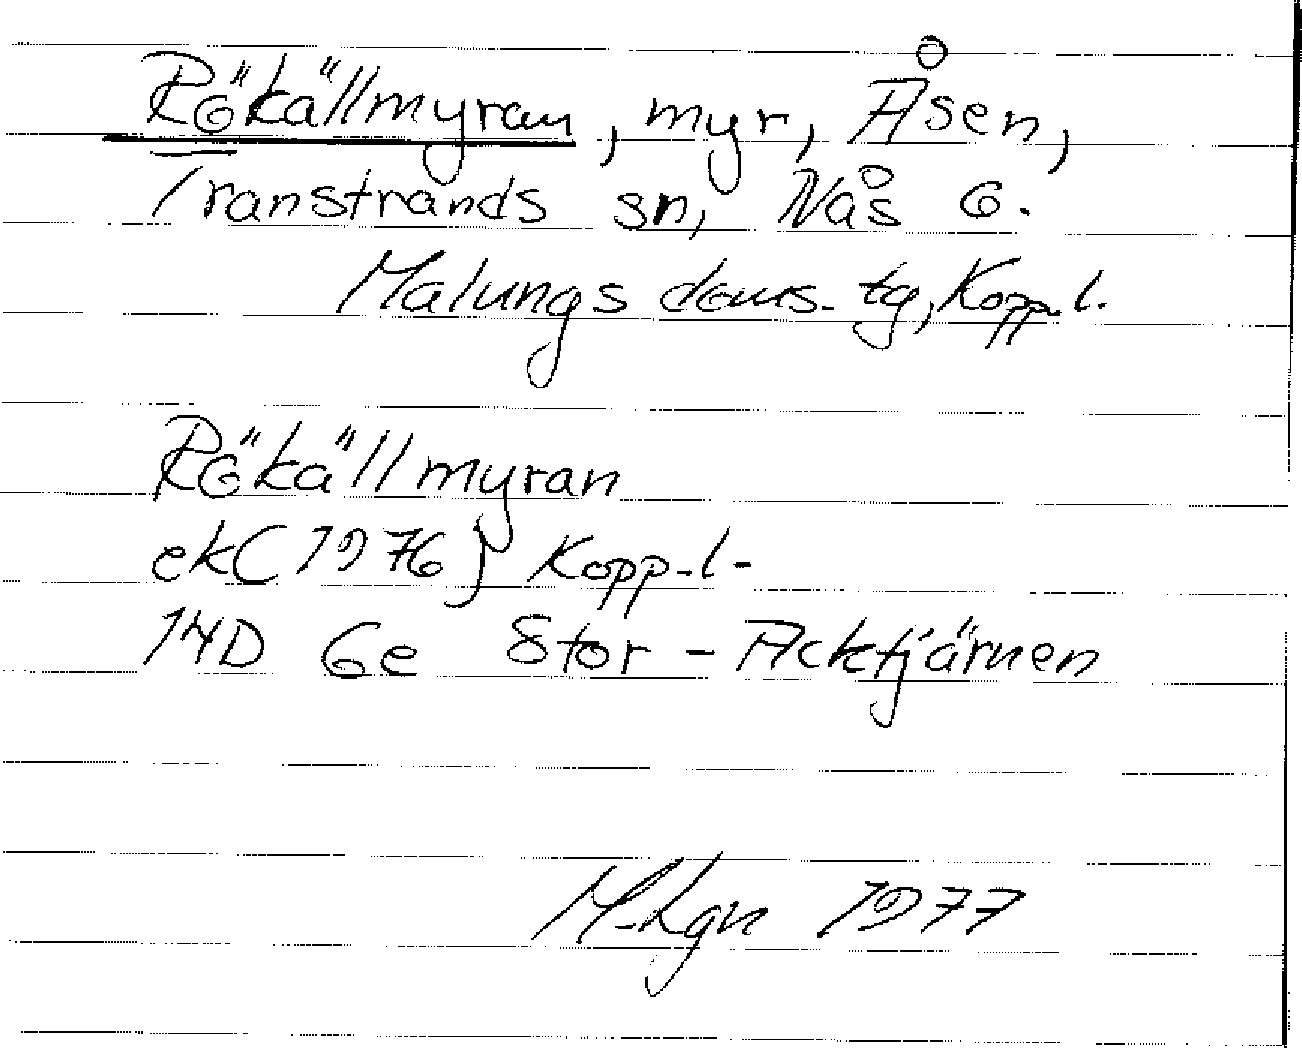 Rökällmyran, myr, Åsen,
Transtrands sn, Nås 6.
Malungs doms. tg, Kopp. l.
Rökällmyran
ek (1976) Kopp. l.
14D 6e Stor-Acktjärnen
M. Lgn 1977